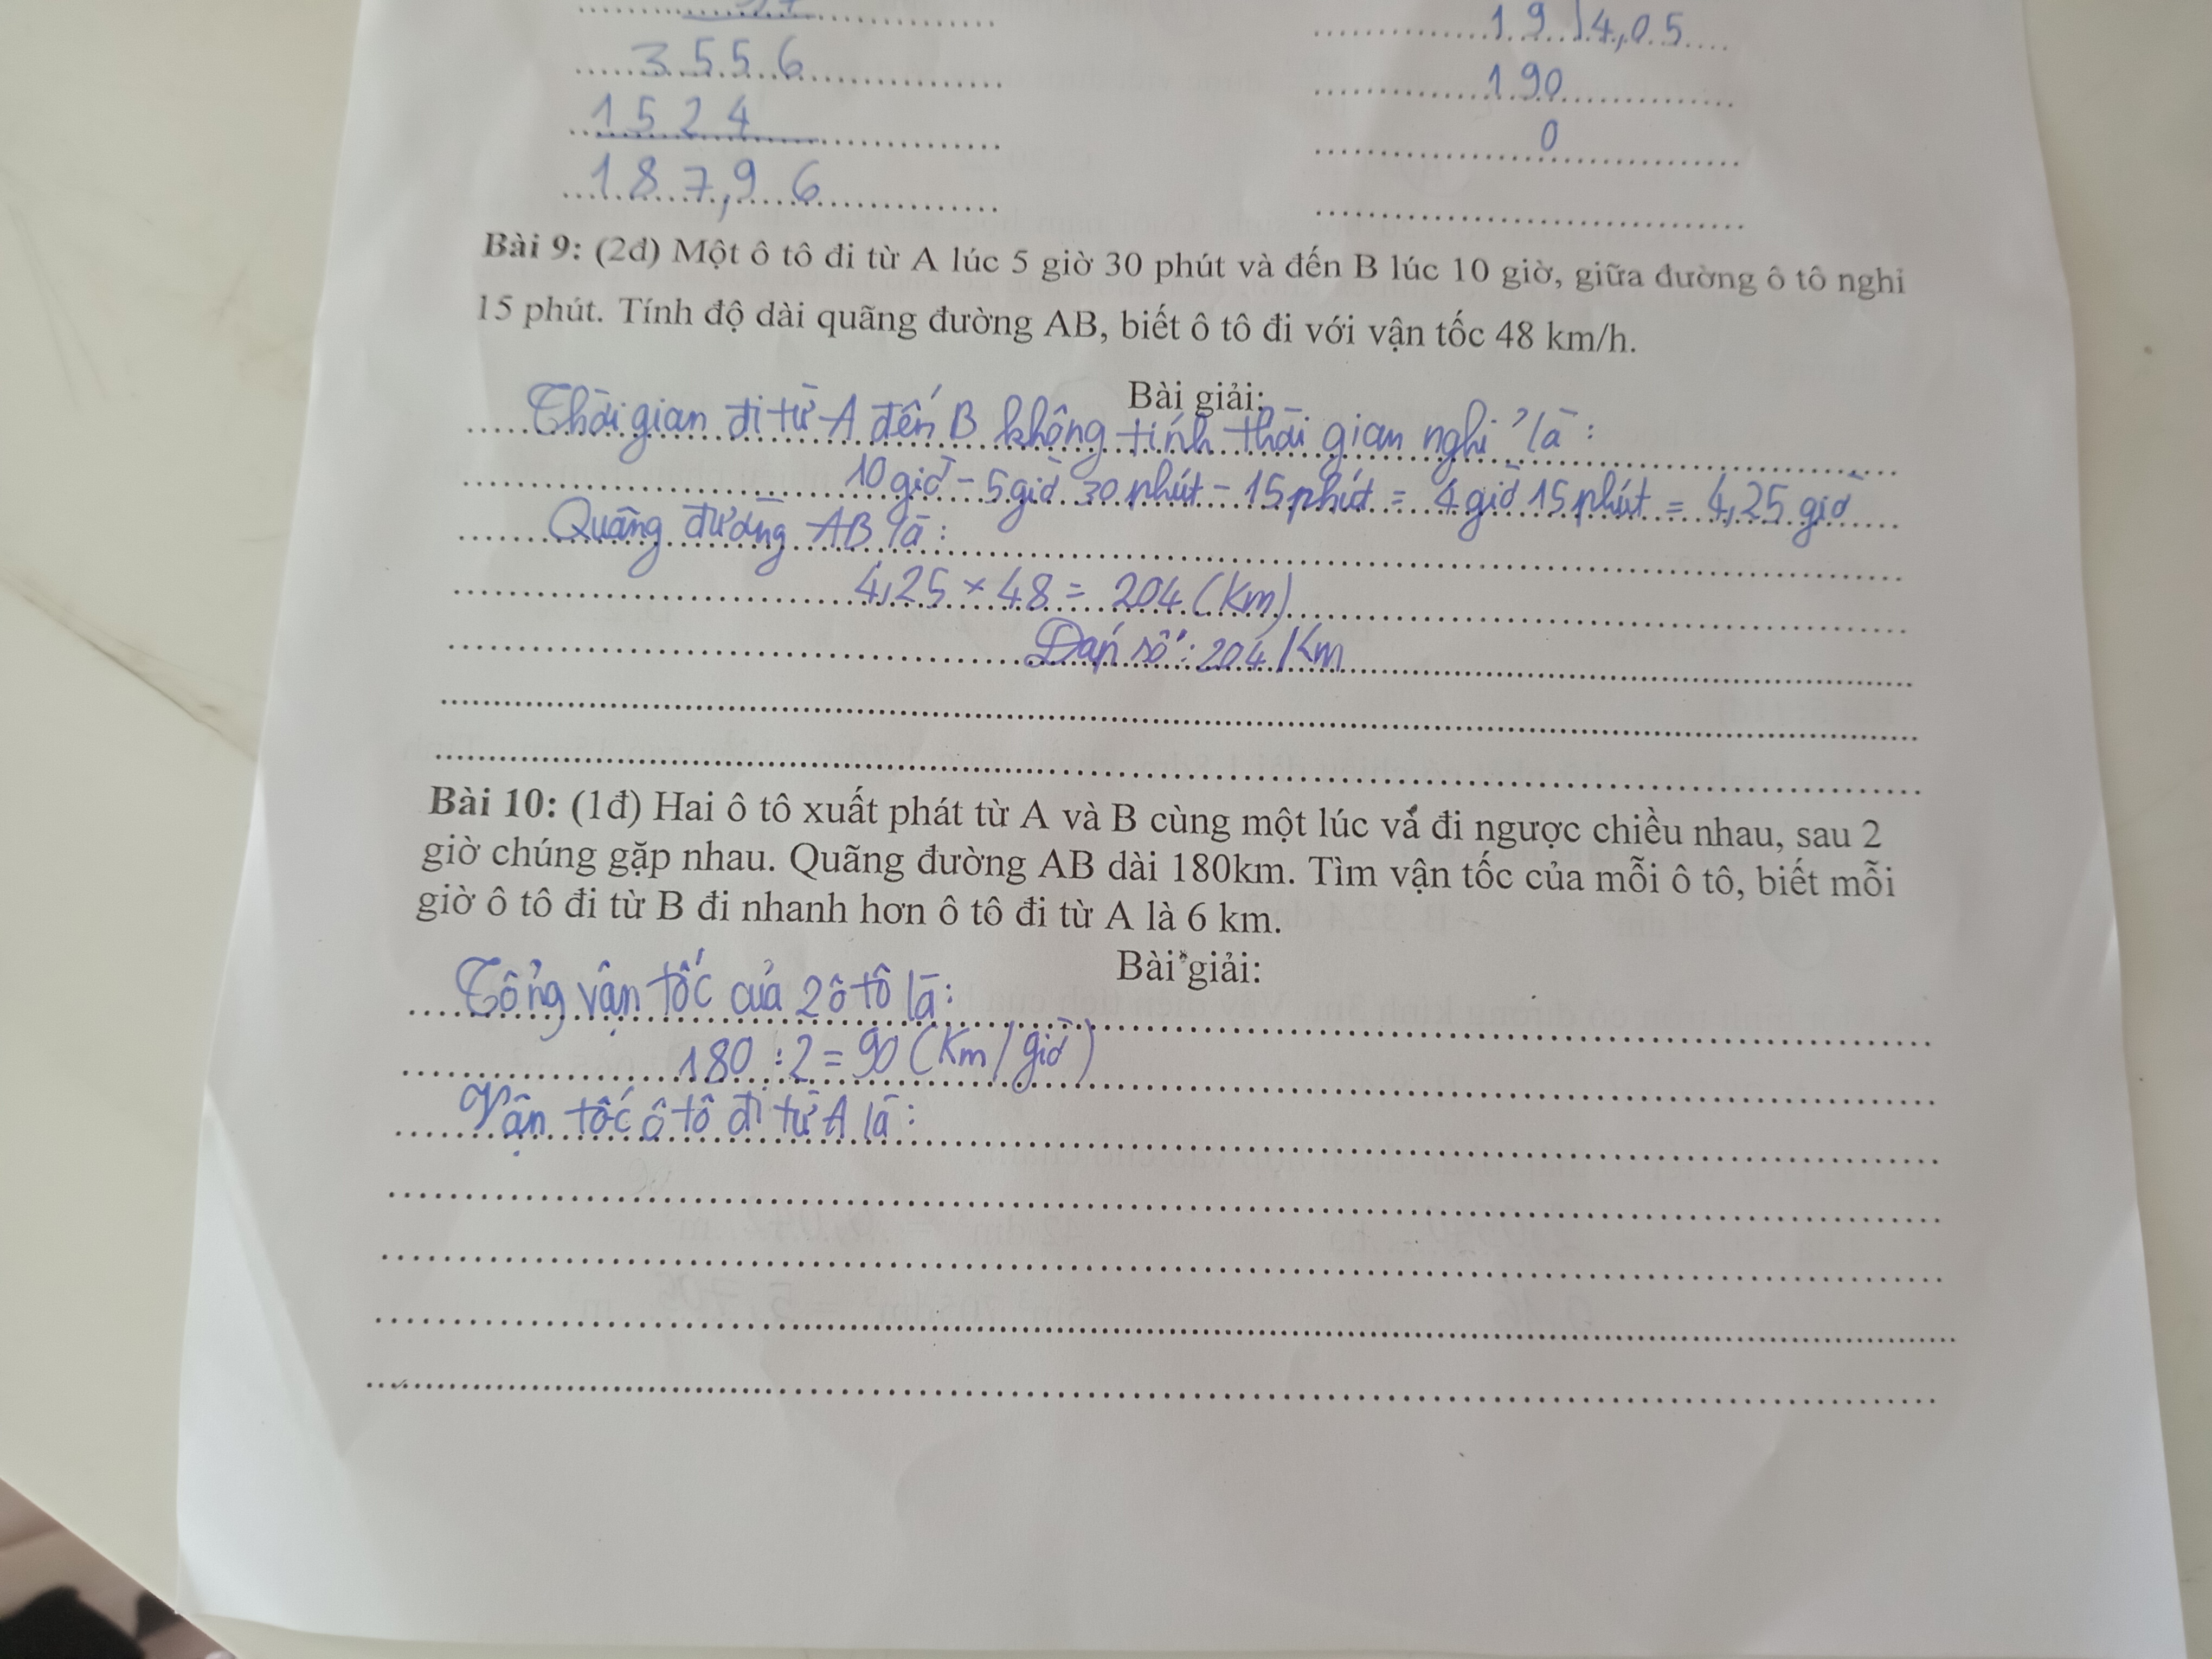 19 14,05
3556
190
1524
0
187,96
Bài 9: (2đ) Một ô tô đi từ A lúc 5 giờ 30 phút và đến B lúc 10 giờ, giữa đường ô tô nghỉ
15 phút. Tính độ dài quãng đường AB, biết ô tô đi với vận tốc 48 km/h.
Bài giải:
Thời gian đi từ A đến B không tính thời gian nghỉ là:
10 giờ - 5 giờ 30 phút - 15 phút = 4 giờ 15 phút = 4,25 giờ
Quãng đường AB là:
4,25 × 48 = 204 (Km)
Đáp số: 204 Km
Bài 10: (1đ) Hai ô tô xuất phát từ A và B cùng một lúc vả đi ngược chiều nhau, sau 2
giờ chúng gặp nhau. Quãng đường AB dài 180km. Tìm vận tốc của mỗi ô tô, biết mỗi
giờ ô tô đi từ B đi nhanh hơn ô tô đi từ A là 6 km.
Bài giải:
Tổng vận tốc của 2 ô tô là:
180 : 2 = 90 (Km/giờ)
Vận tốc ô tô đi từ A là: